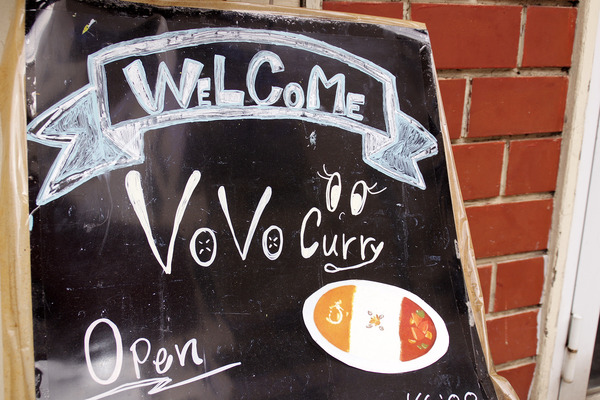 WELCOME
VOVO Curry
Open